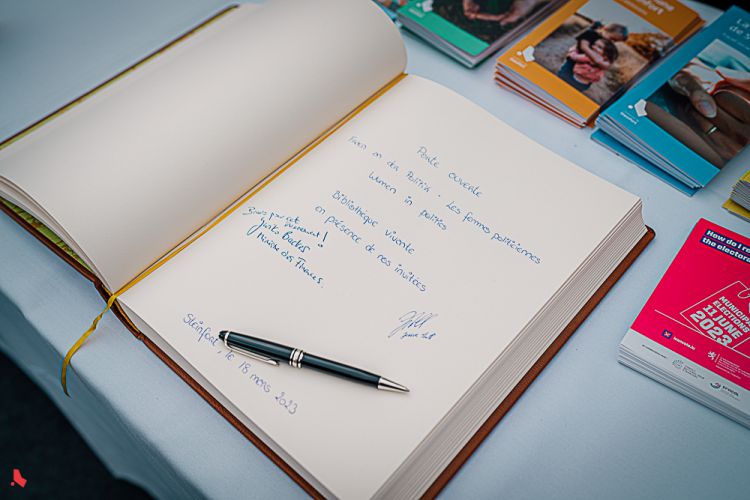 Porte ouverte
Fraen an der Politik - Les femmes politiciennes
Women in politics
Bibliothèque vivante
en présence de nos invitées
Bravo pour cet
évènement !
Yuriko Backes
Ministre des Finances.
Steinfort, le 18 mars 2023
How do I re
the elector
MUNICIP
ELECTIONS
11 JUNE
2023